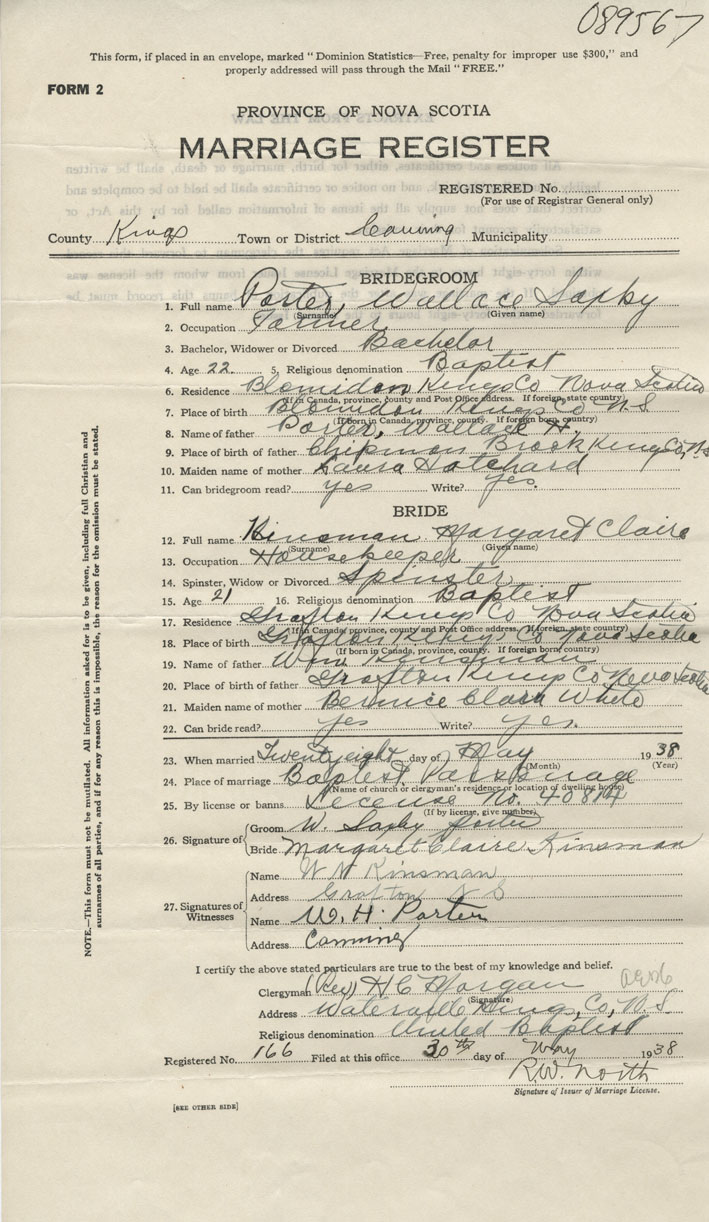 089567
This form, if placed in an envelope, marked "Dominion Statistics—Free, penalty for improper use $300," and
properly addressed will pass through the Mail "FREE."
FORM 2
PROVINCE OF NOVA SCOTIA
MARRIAGE REGISTER
REGISTERED No.
(For use of Registrar General only)
County Kings Town or District Canning Municipality
BRIDEGROOM
1. Full name Porter, Wallace Saxby
(Surname) (Given name)
2. Occupation Farmer
3. Bachelor, Widower or Divorced Bachelor
4. Age 22. 5. Religious denomination Baptist
6. Residence Blomidon Kings Co Nova Scotia
(If in Canada, province, county and Post Office address. If foreign, state country)
7. Place of birth Blomidon Kings Co N.S.
(If born in Canada, province, county. If foreign born, country)
8. Name of father Porter, Wallace H.
9. Place of birth of father Chipman Brook Kings Co, N.S
10. Maiden name of mother Laura Hatchard
11. Can bridegroom read? yes Write? yes.
BRIDE
12. Full name Kinsman Margaret Claire
(Surname) (Given name)
13. Occupation Housekeeper
14. Spinster, Widow or Divorced Spinster
15. Age 21 16. Religious denomination Baptist
17. Residence Grafton Kings Co Nova Scotia
(If in Canada, province, county and Post Office address. If foreign, state country)
18. Place of birth Grafton Kings Co Nova Scotia
(If born in Canada, province, county. If foreign born, country)
19. Name of father Wm Kinsman
20. Place of birth of father Grafton Kings Co Nova Scotia
21. Maiden name of mother Bernice Clara White
22. Can bride read? yes Write? yes.
23. When married Twenty eight day of May 1938
(Month) (Year)
24. Place of marriage Baptist Parsonage
(Name of church or clergyman's residence or location of dwelling house)
25. By license or banns License No.
(If by license, give number)
26. Signature of Groom W. Saxby Porter
Bride Margaret Claire Kinsman
27. Signatures of Witnesses Name W N Kinsman
Address Grafton N S
Name W. H. Porter
Address Canning
I certify the above stated particulars are true to the best of my knowledge and belief.
Clergyman (Rev) H C Morgan
(Signature)
Address Waterville Kings, Co, N.S.
Religious denomination United Baptist
Registered No. 166 Filed at this office 30th day of May 1938
R.W. North
Signature of Issuer of Marriage License.
[SEE OTHER SIDE]
NOTE.—This form must not be mutilated. All information asked for is to be given, including full Christian and
surnames of all parties, and if for any reason this is impossible, the reason for the omission must be stated.